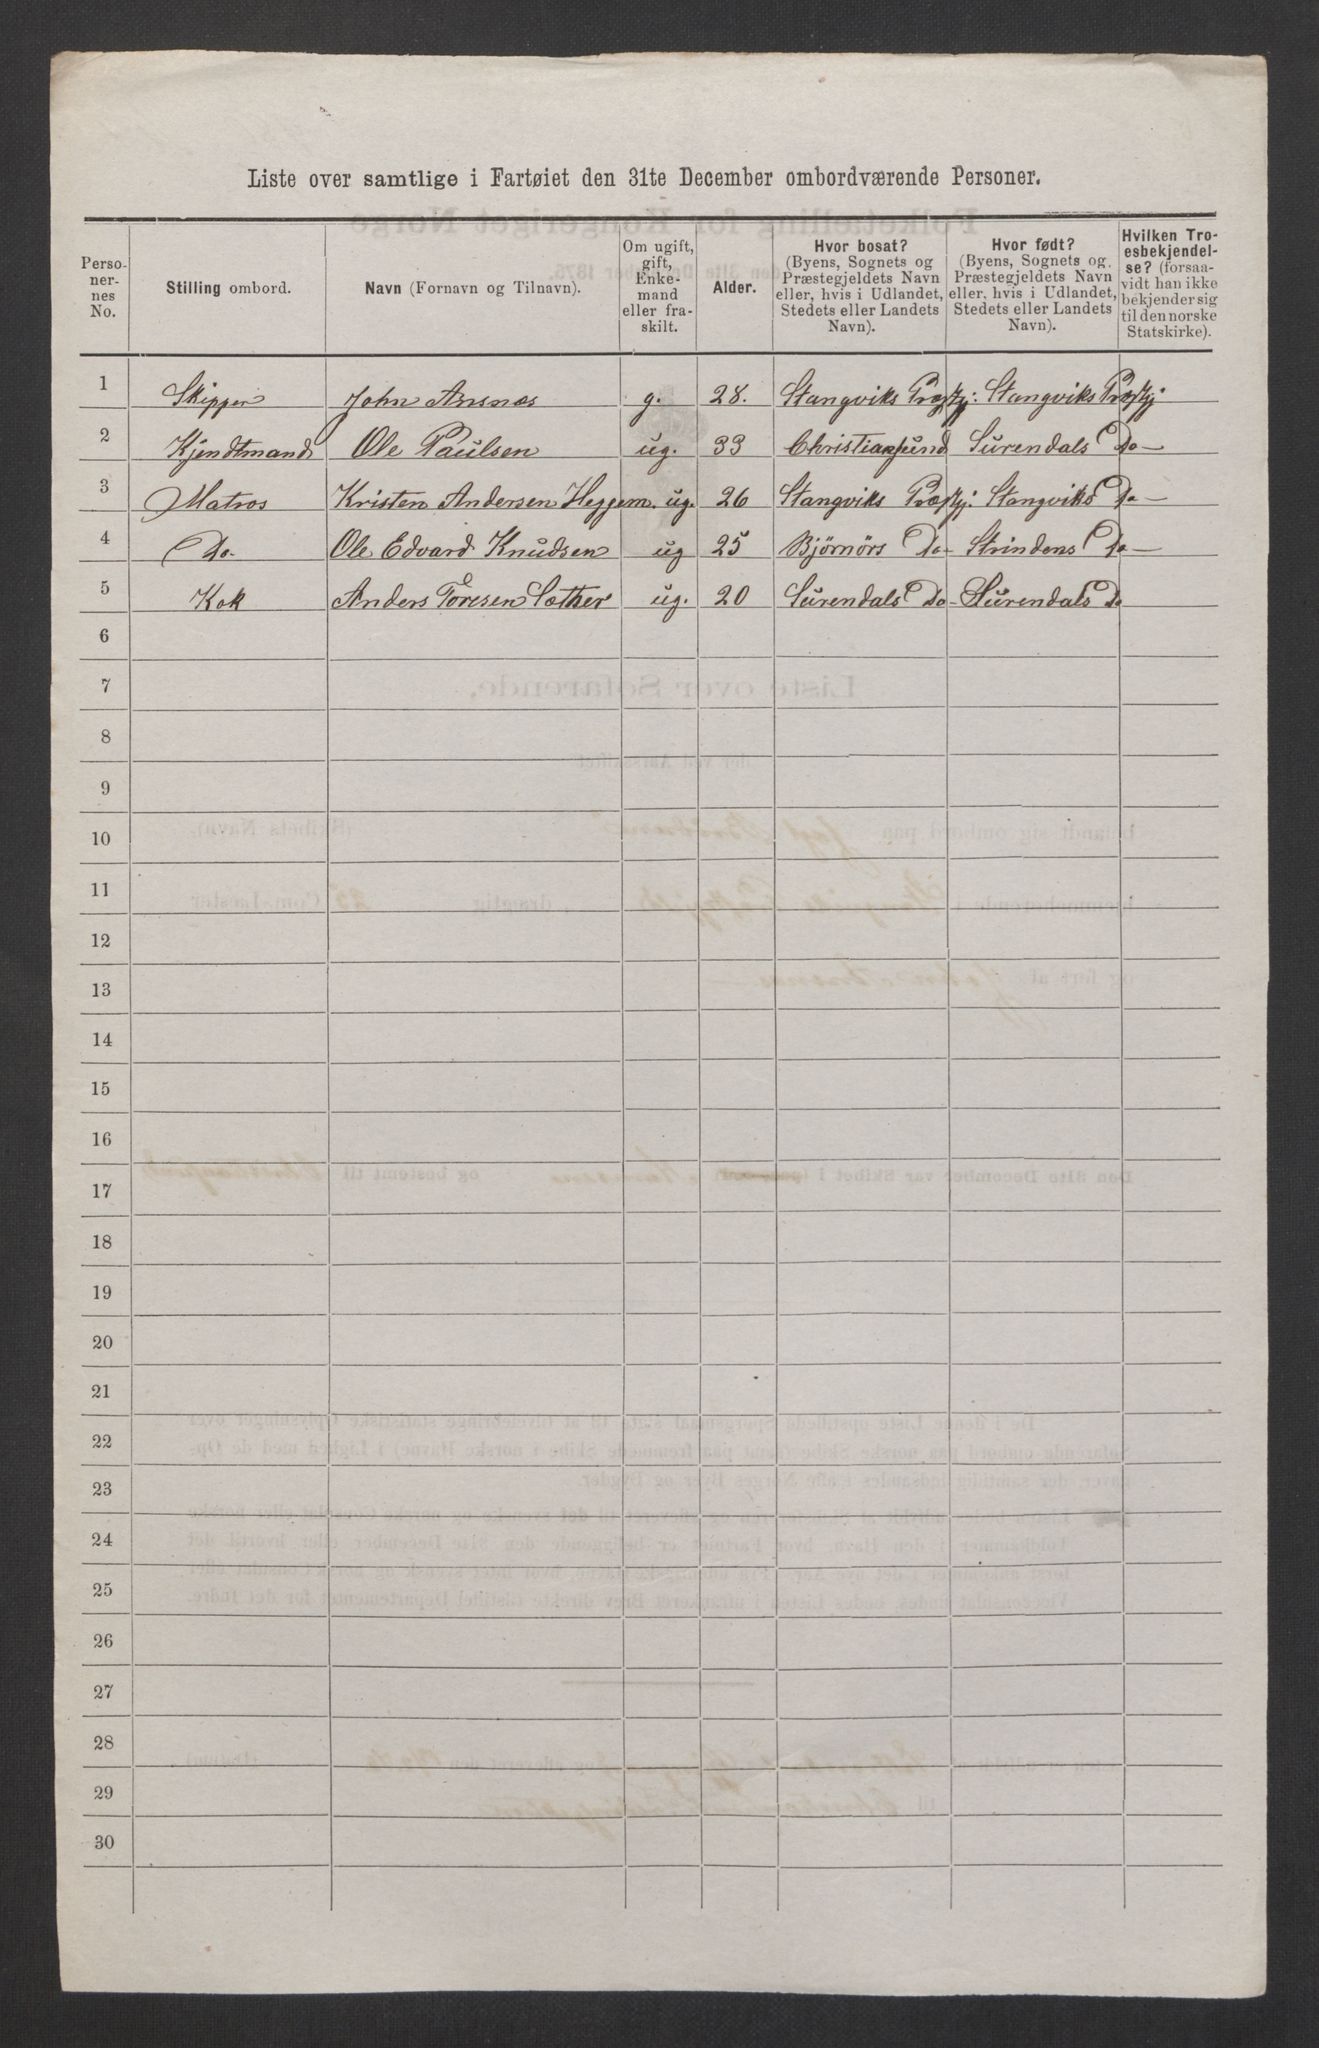 Liste over samtlige i Fartøiet den 31te December ombordværende Personer.
Perso-
ner-
nes
No.
Stilling ombord.
Navn (Fornavn og Tilnavn).
Om ugift,
gift,
Enke-
mand
eller fra-
skilt.
Alder.
Hvor bosat?
(Byens, Sognets og
Præstegjeldets Navn
eller, hvis i Udlandet,
Stedets eller Landets
Navn).
Hvor født?
(Byens, Sognets og
Præstegjeldets Navn
eller, hvis i Udlandet,
Stedets eller Landets
Navn).
Hvilken Tro-
esbekjendel-
se? (forsaa-
vidt han ikke
bekjender sig
til den norske
Statskirke).
1 Skipper John Ansnæs g. 28. Stangviks Præstgj. Stangviks Præstgj
2 Kjendtmand Ole Paulsen ug. 33 Christiansund Surendals Do—
3 Matros Kristen Andersen Heggem. ug. 26 Stangviks Præstgj. Stangviks Do—
4 Do- Ole Edvard Knudsen ug 25 Bjørnørs Do- Strindens Do—
5 Kok Anders Toresen Sæther ug. 20 Surendals Do- Surendals Do
6
7
8
9
10
11
12
13
14
15
16
17
18
19
20
21
22
23
24
25
26
27
28
29
30